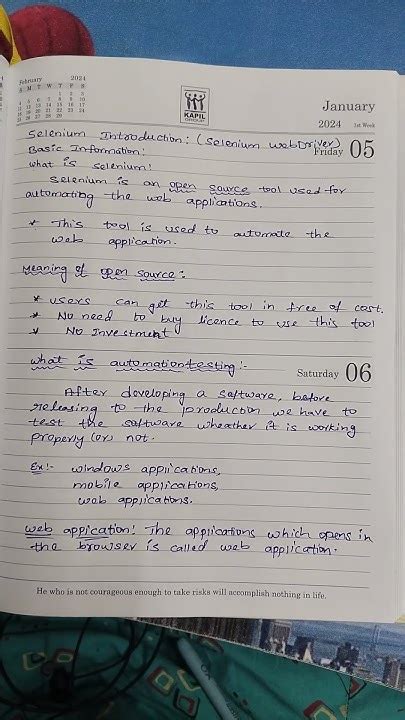 February 2024
S M T W T F S
1 2 3
4 5 6 7 8 9 10
11 12 13 14 15 16 17
18 19 20 21 22 23 24
25 26 27 28 29
KAPIL
GROUP
January
2024 1st Week
Friday 05
Selenium Introduction: (Selenium WebDriver)
Basic Information:
What is selenium:
Selenium is an open source tool used for
automating the web applications.
* This tool is used to automate the
web application.
Meaning of open source:
* users can get this tool in free of cost.
* No need to buy licence to use this tool
* No Investment
What is automation testing:-
Saturday 06
After developing a software, before
releasing to the production we have to
test the software wheather it is working
properly (or) not.
Ex:- windows applications,
mobile applications,
web applications.
web appication: The applications which opens in
the browser is called web application.
He who is not courageous enough to take risks will accomplish nothing in life.